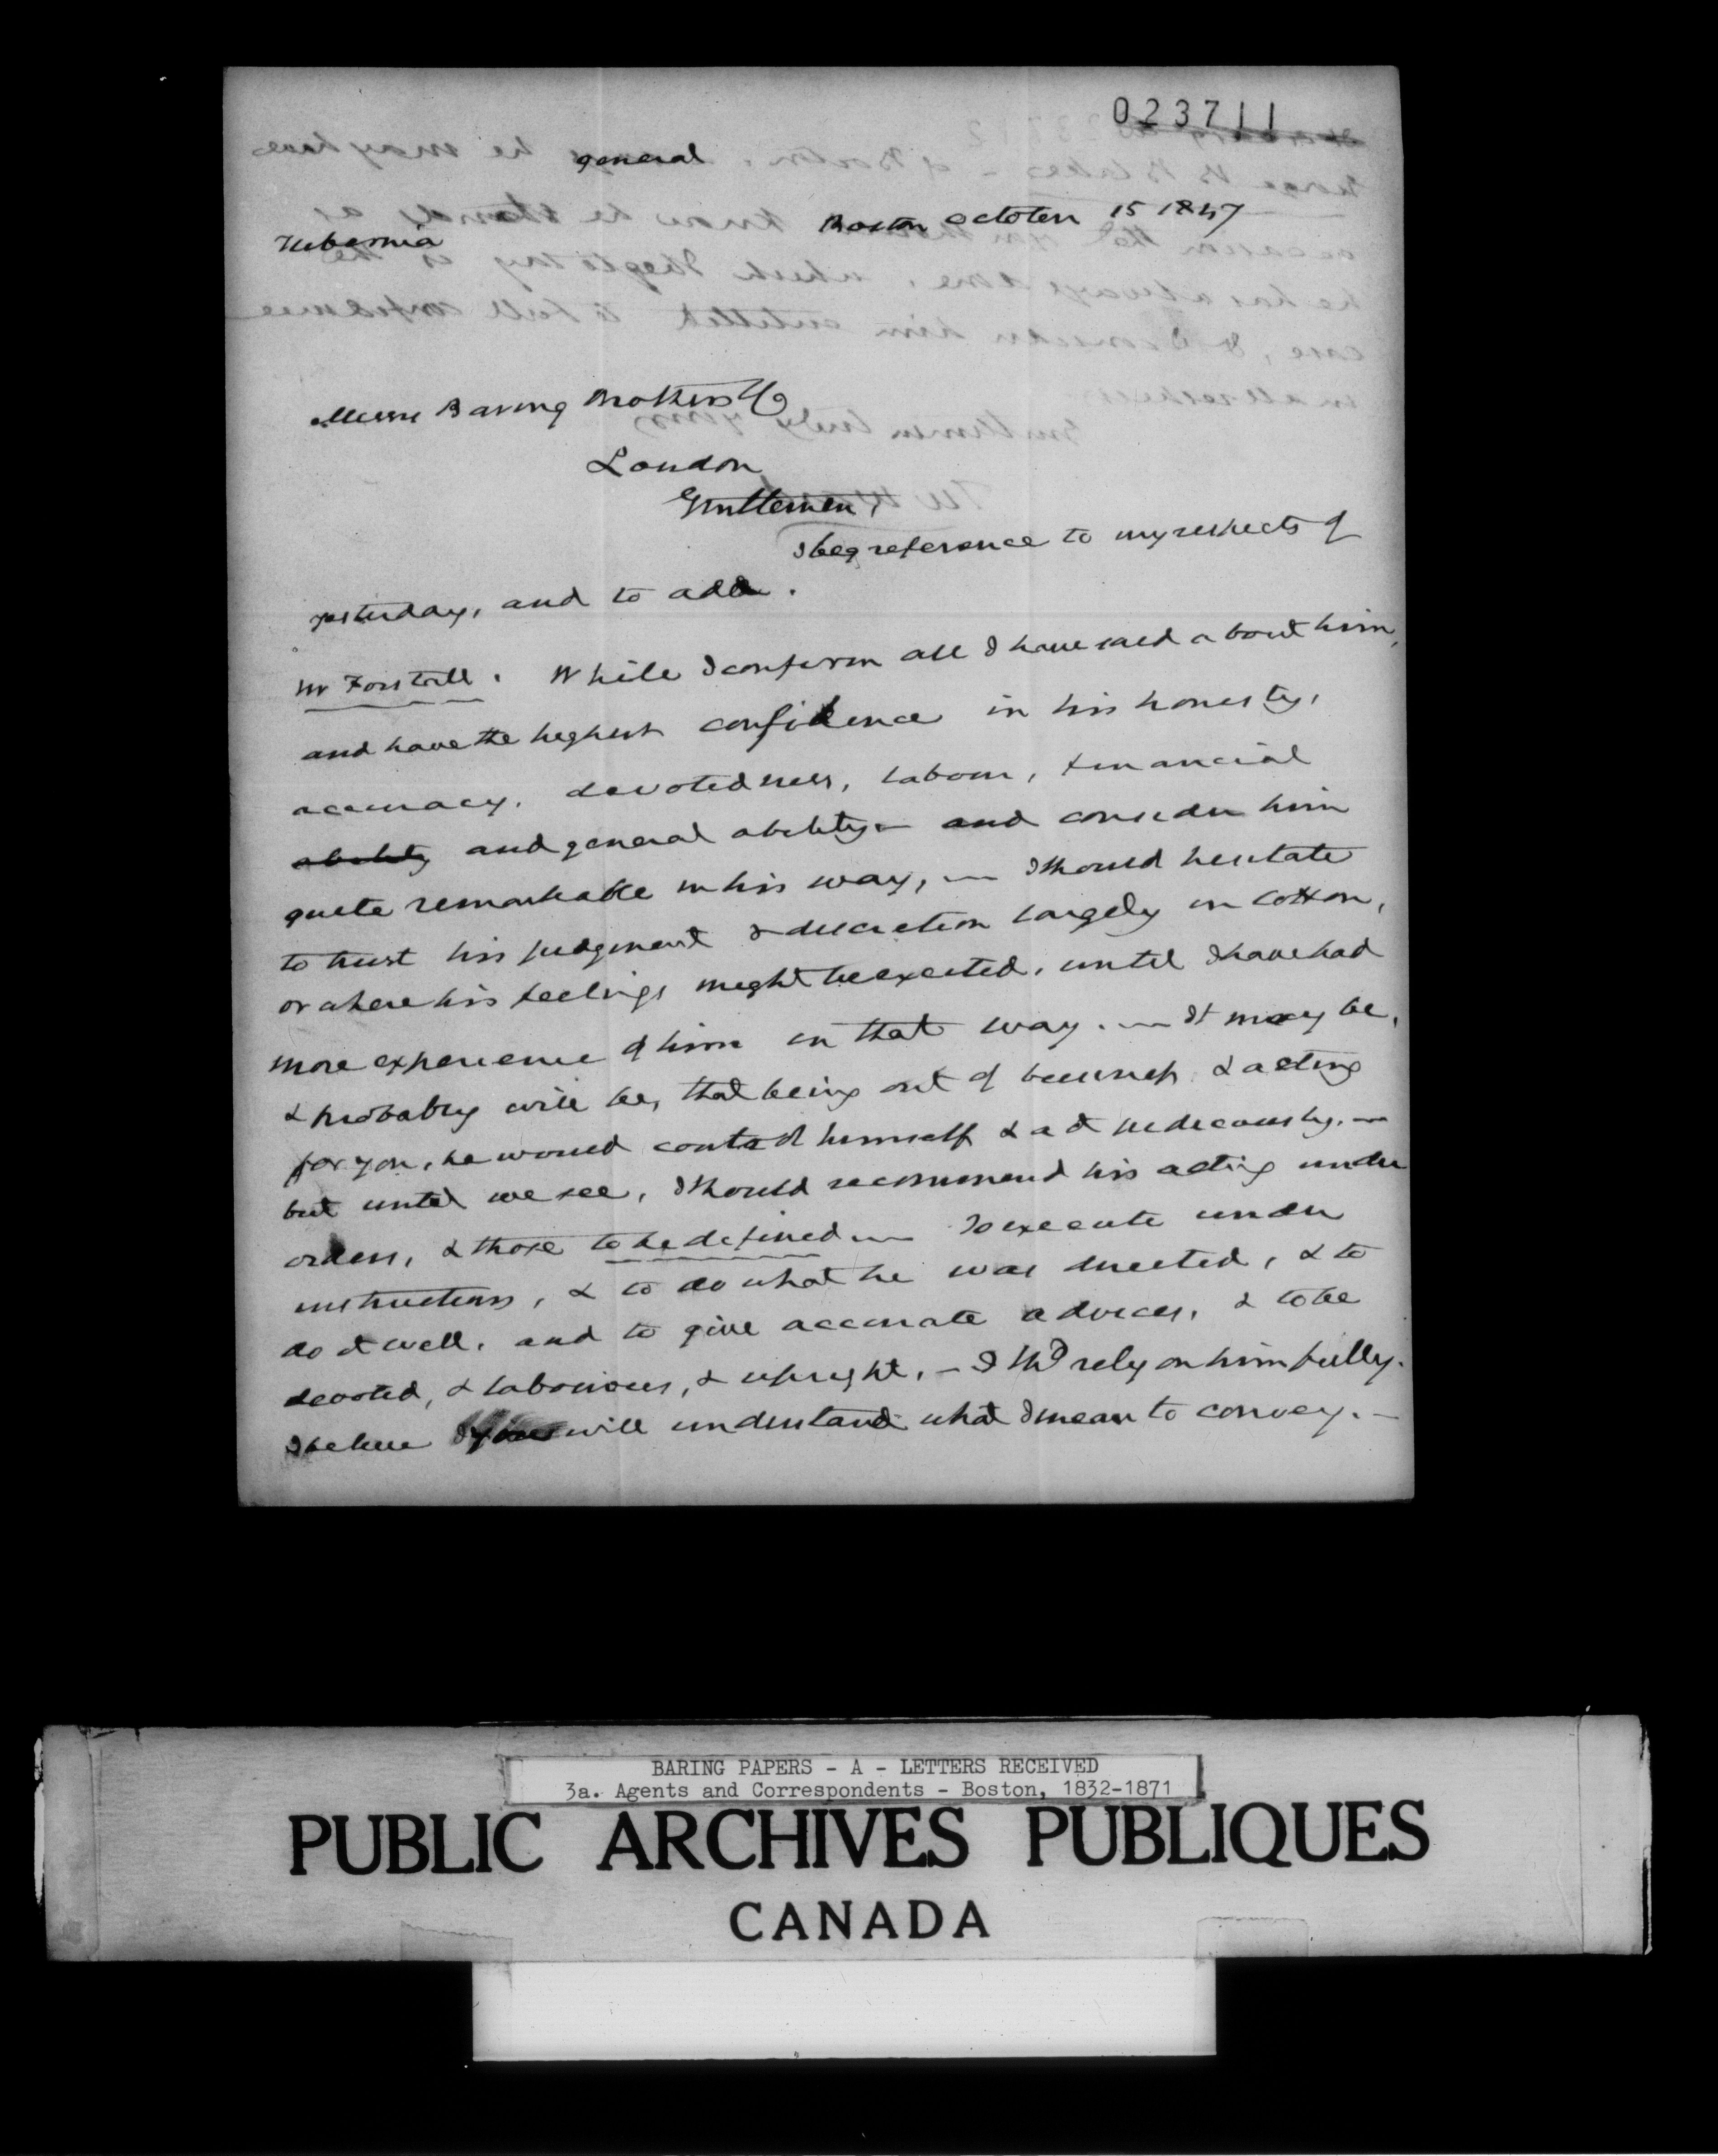 023711
general
Boston October 15 1847
Hibernia
Messrs Baring Brothers & Co
London
Gentlemen,
I beg reference to my respects of
yesterday, and to add.
Mr Forstall. While I confirm all I have said about him,
and have the highest confidence in his honesty,
accuracy, devotedness, labour, financial
ability and general ability — and consider him
quite remarkable in his way, — I should hesitate
to trust his judgment & discretion largely in cotton,
or where his feelings might be excited, until I have had
more experience of him in that way. — It may be,
& probably will be, that being out of business & acting
for you, he would control himself & act judiciously. —
but until we see, I should recommend his acting under
orders, & those to be defined — To execute under
instructions, & to do what he was directed, & to
do it well, and to give accurate advices, & to be
devoted, & laborious, & upright, — I shd rely on him fully.
I believe you will understand what I mean to convey. —
BARING PAPERS - A - LETTERS RECEIVED
3a. Agents and Correspondents - Boston, 1832-1871
PUBLIC ARCHIVES PUBLIQUES
CANADA